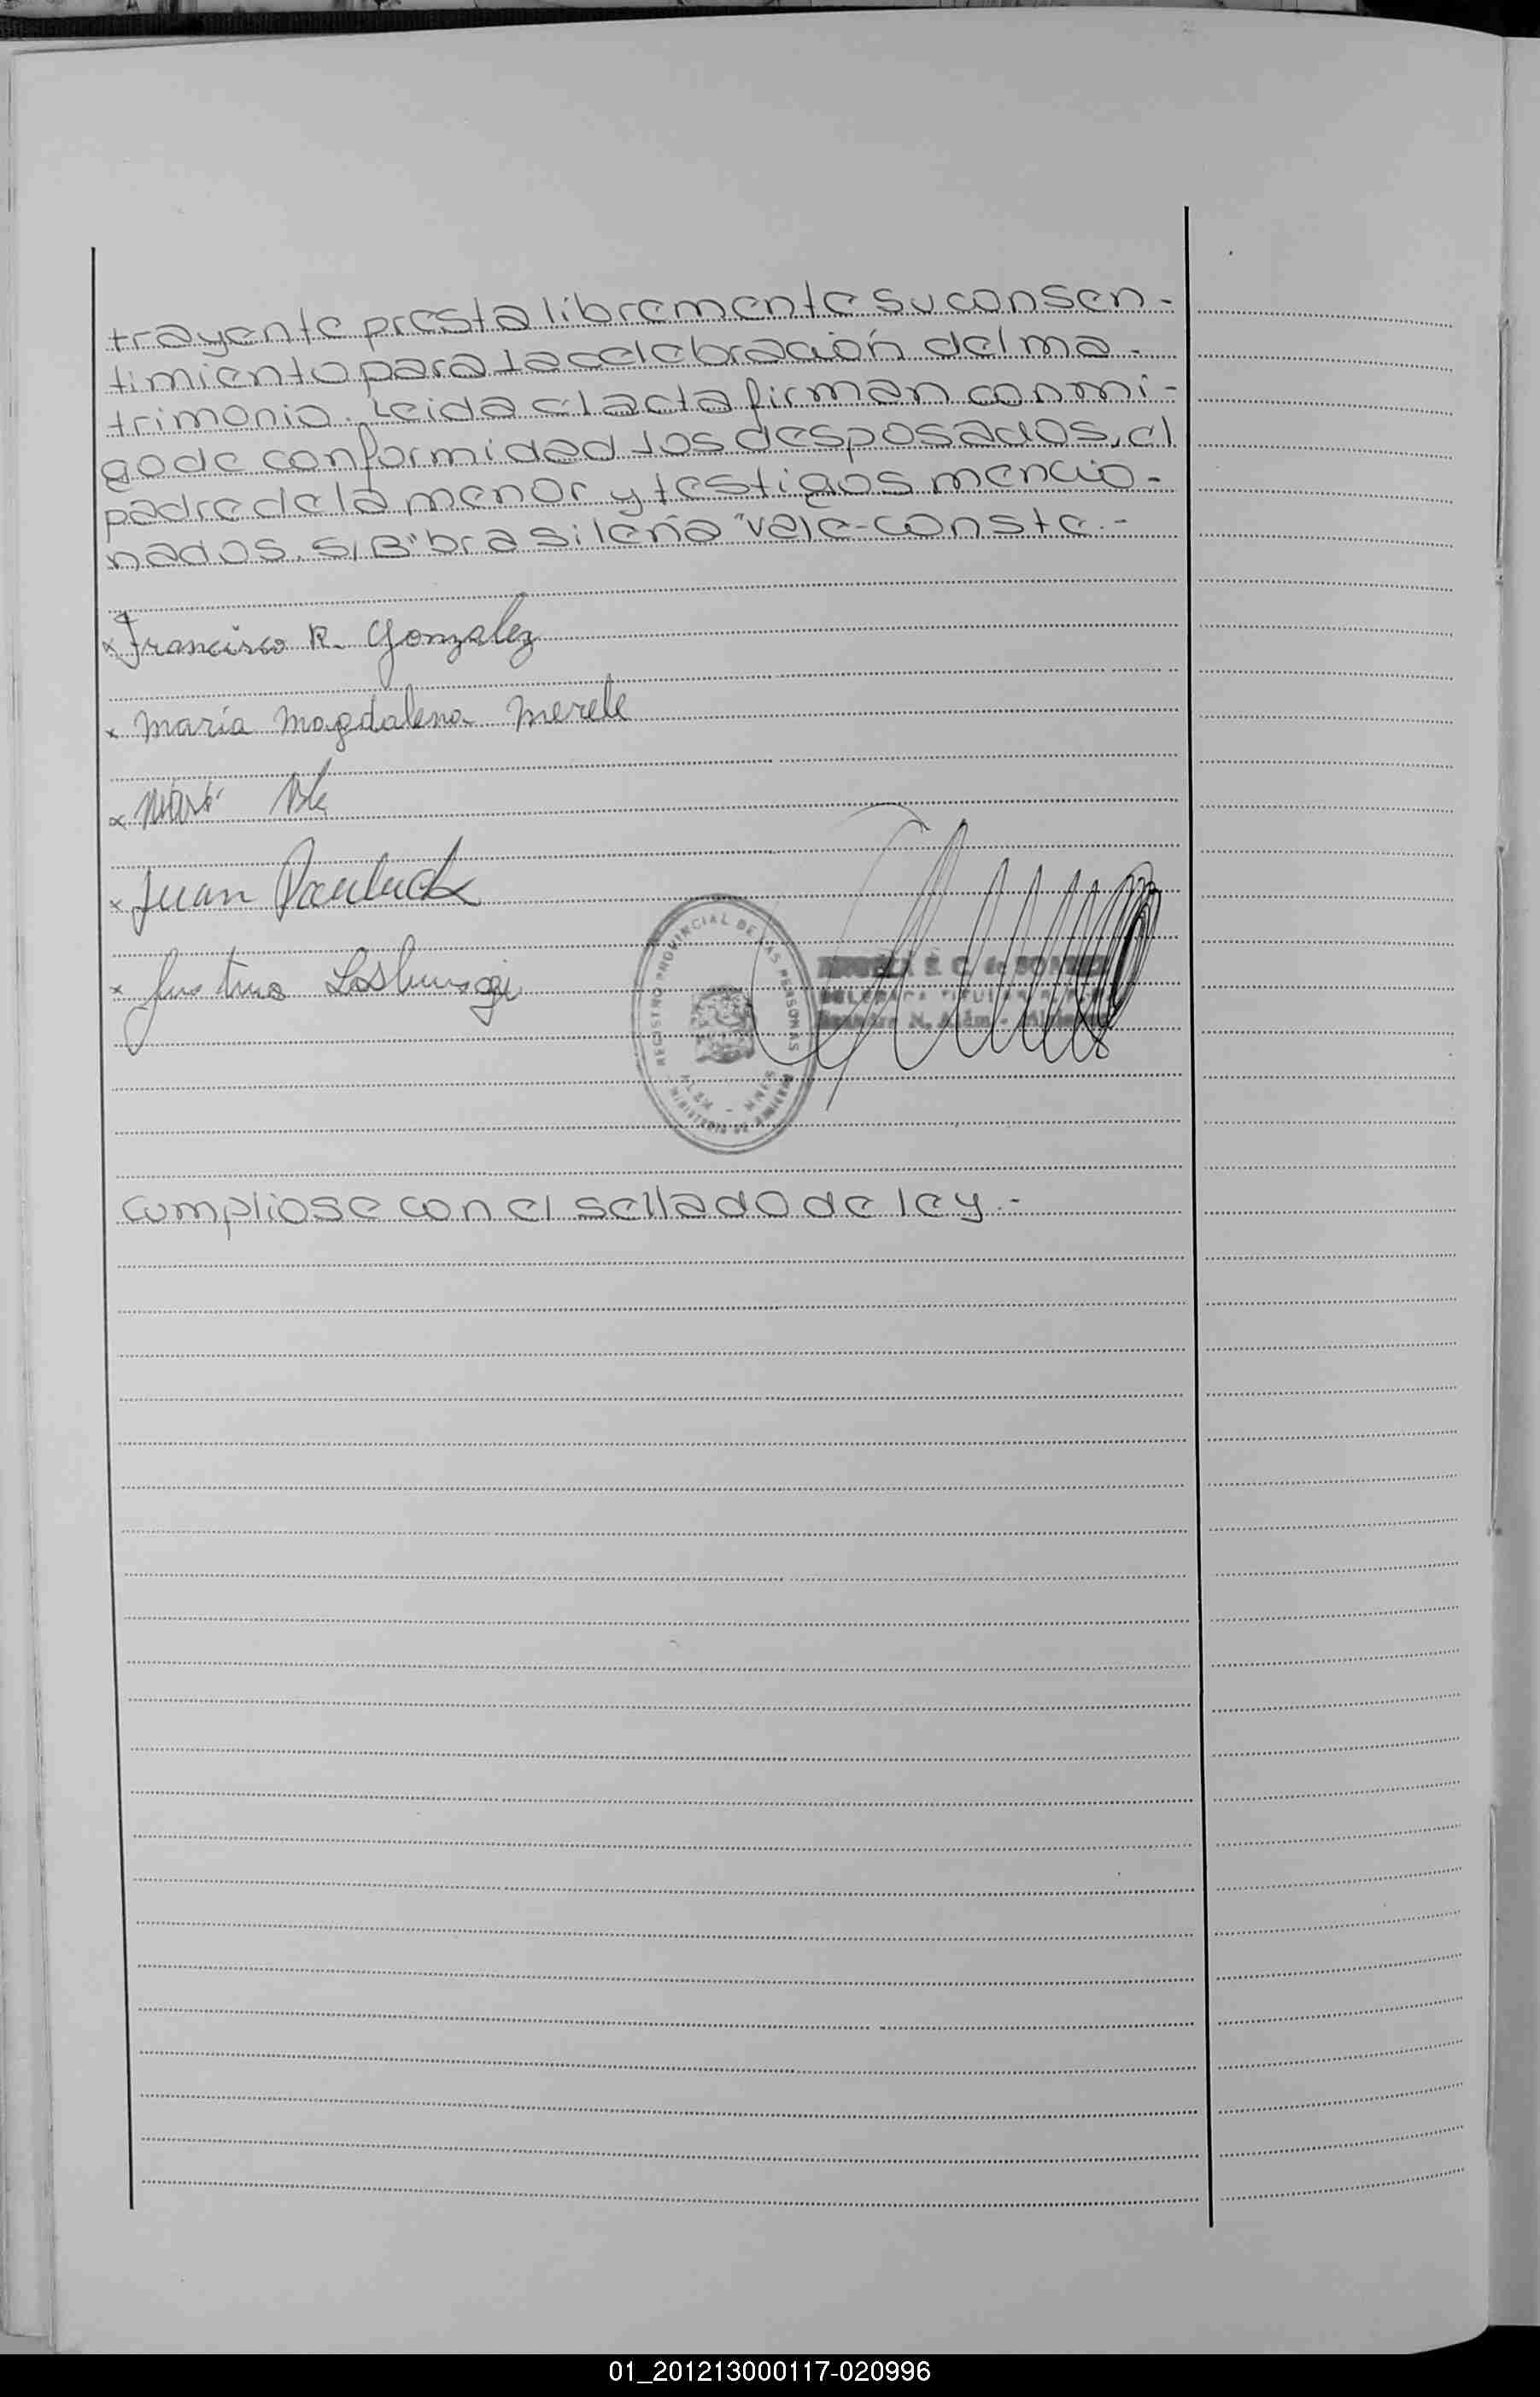 trayente presta libremente su consen-
timiento para la celebración del ma-
trimonio. Leida el acta firman conmi-
go de conformidad los desposados, el
padre de la menor y testigos mencio-
nados. S/B "brasileña" vale-conste.-
x Francisco R. Gonzalez
x María Magdalena Merele
x
x Juan
x
REGISTRO PROVINCIAL DE LAS PERSONAS
MINISTERIO DE GOBIERNO
DELEGADA TITULAR
Leandro N. Alem -
Cumpliose con el sellado de ley.-
01_201213000117-020996